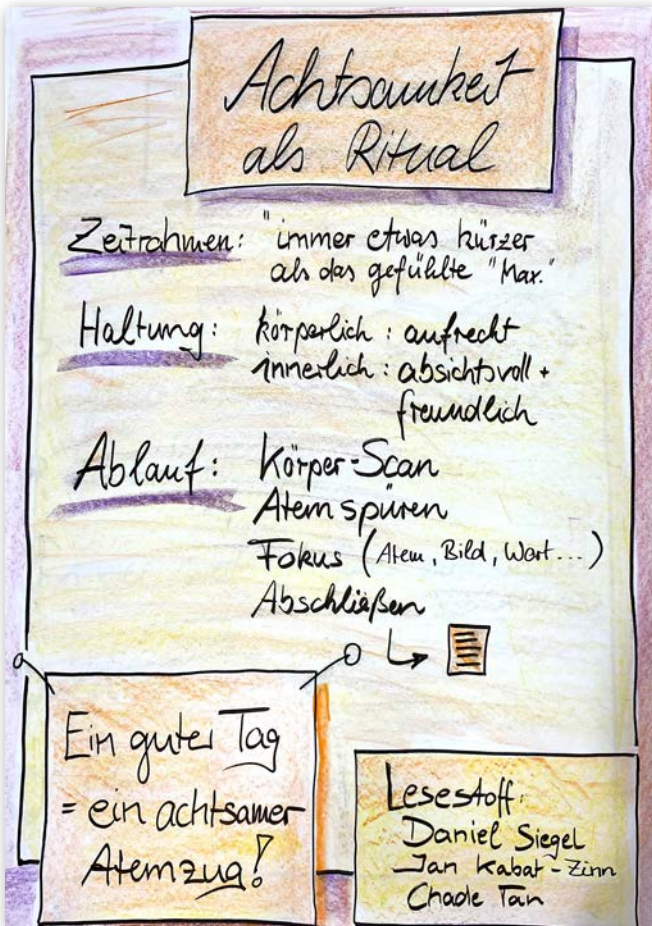 Achtsamkeit
als Ritual
Zeitrahmen: "immer etwas kürzer
als das gefühlte "Max."
Haltung: körperlich: aufrecht
innerlich: absichtsvoll +
freundlich
Ablauf: Körper-Scan
Atem spüren
Fokus (Atem, Bild, Wort...)
Abschließen
Ein guter Tag
= ein achtsamer
Atemzug!
Lesestoff:
Daniel Siegel
Jan Kabat-Zinn
Chade Tan